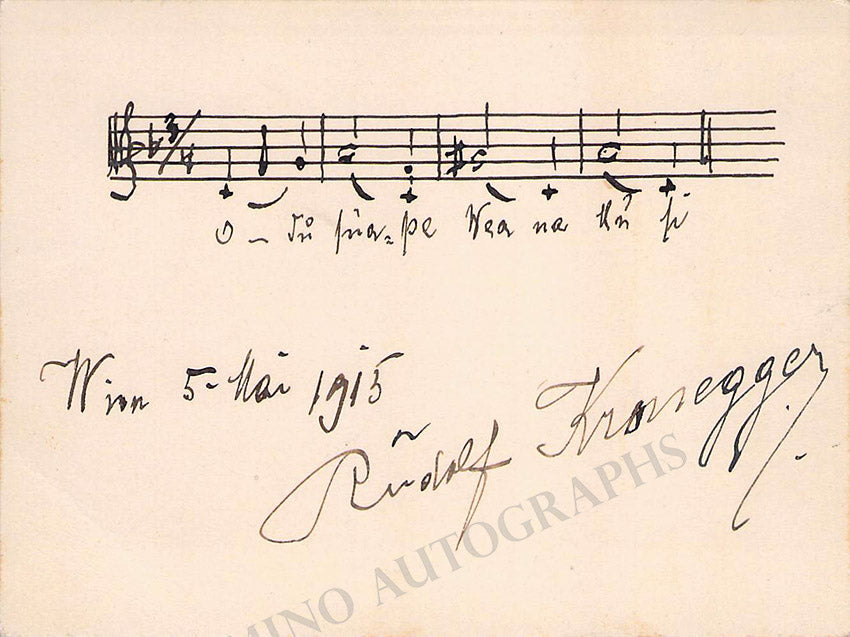 3/4
O – du süa=ße Wea na Mu si
Wien 5. Mai 1915
Rudolf Kronegger
MINO AUTOGRAPHS